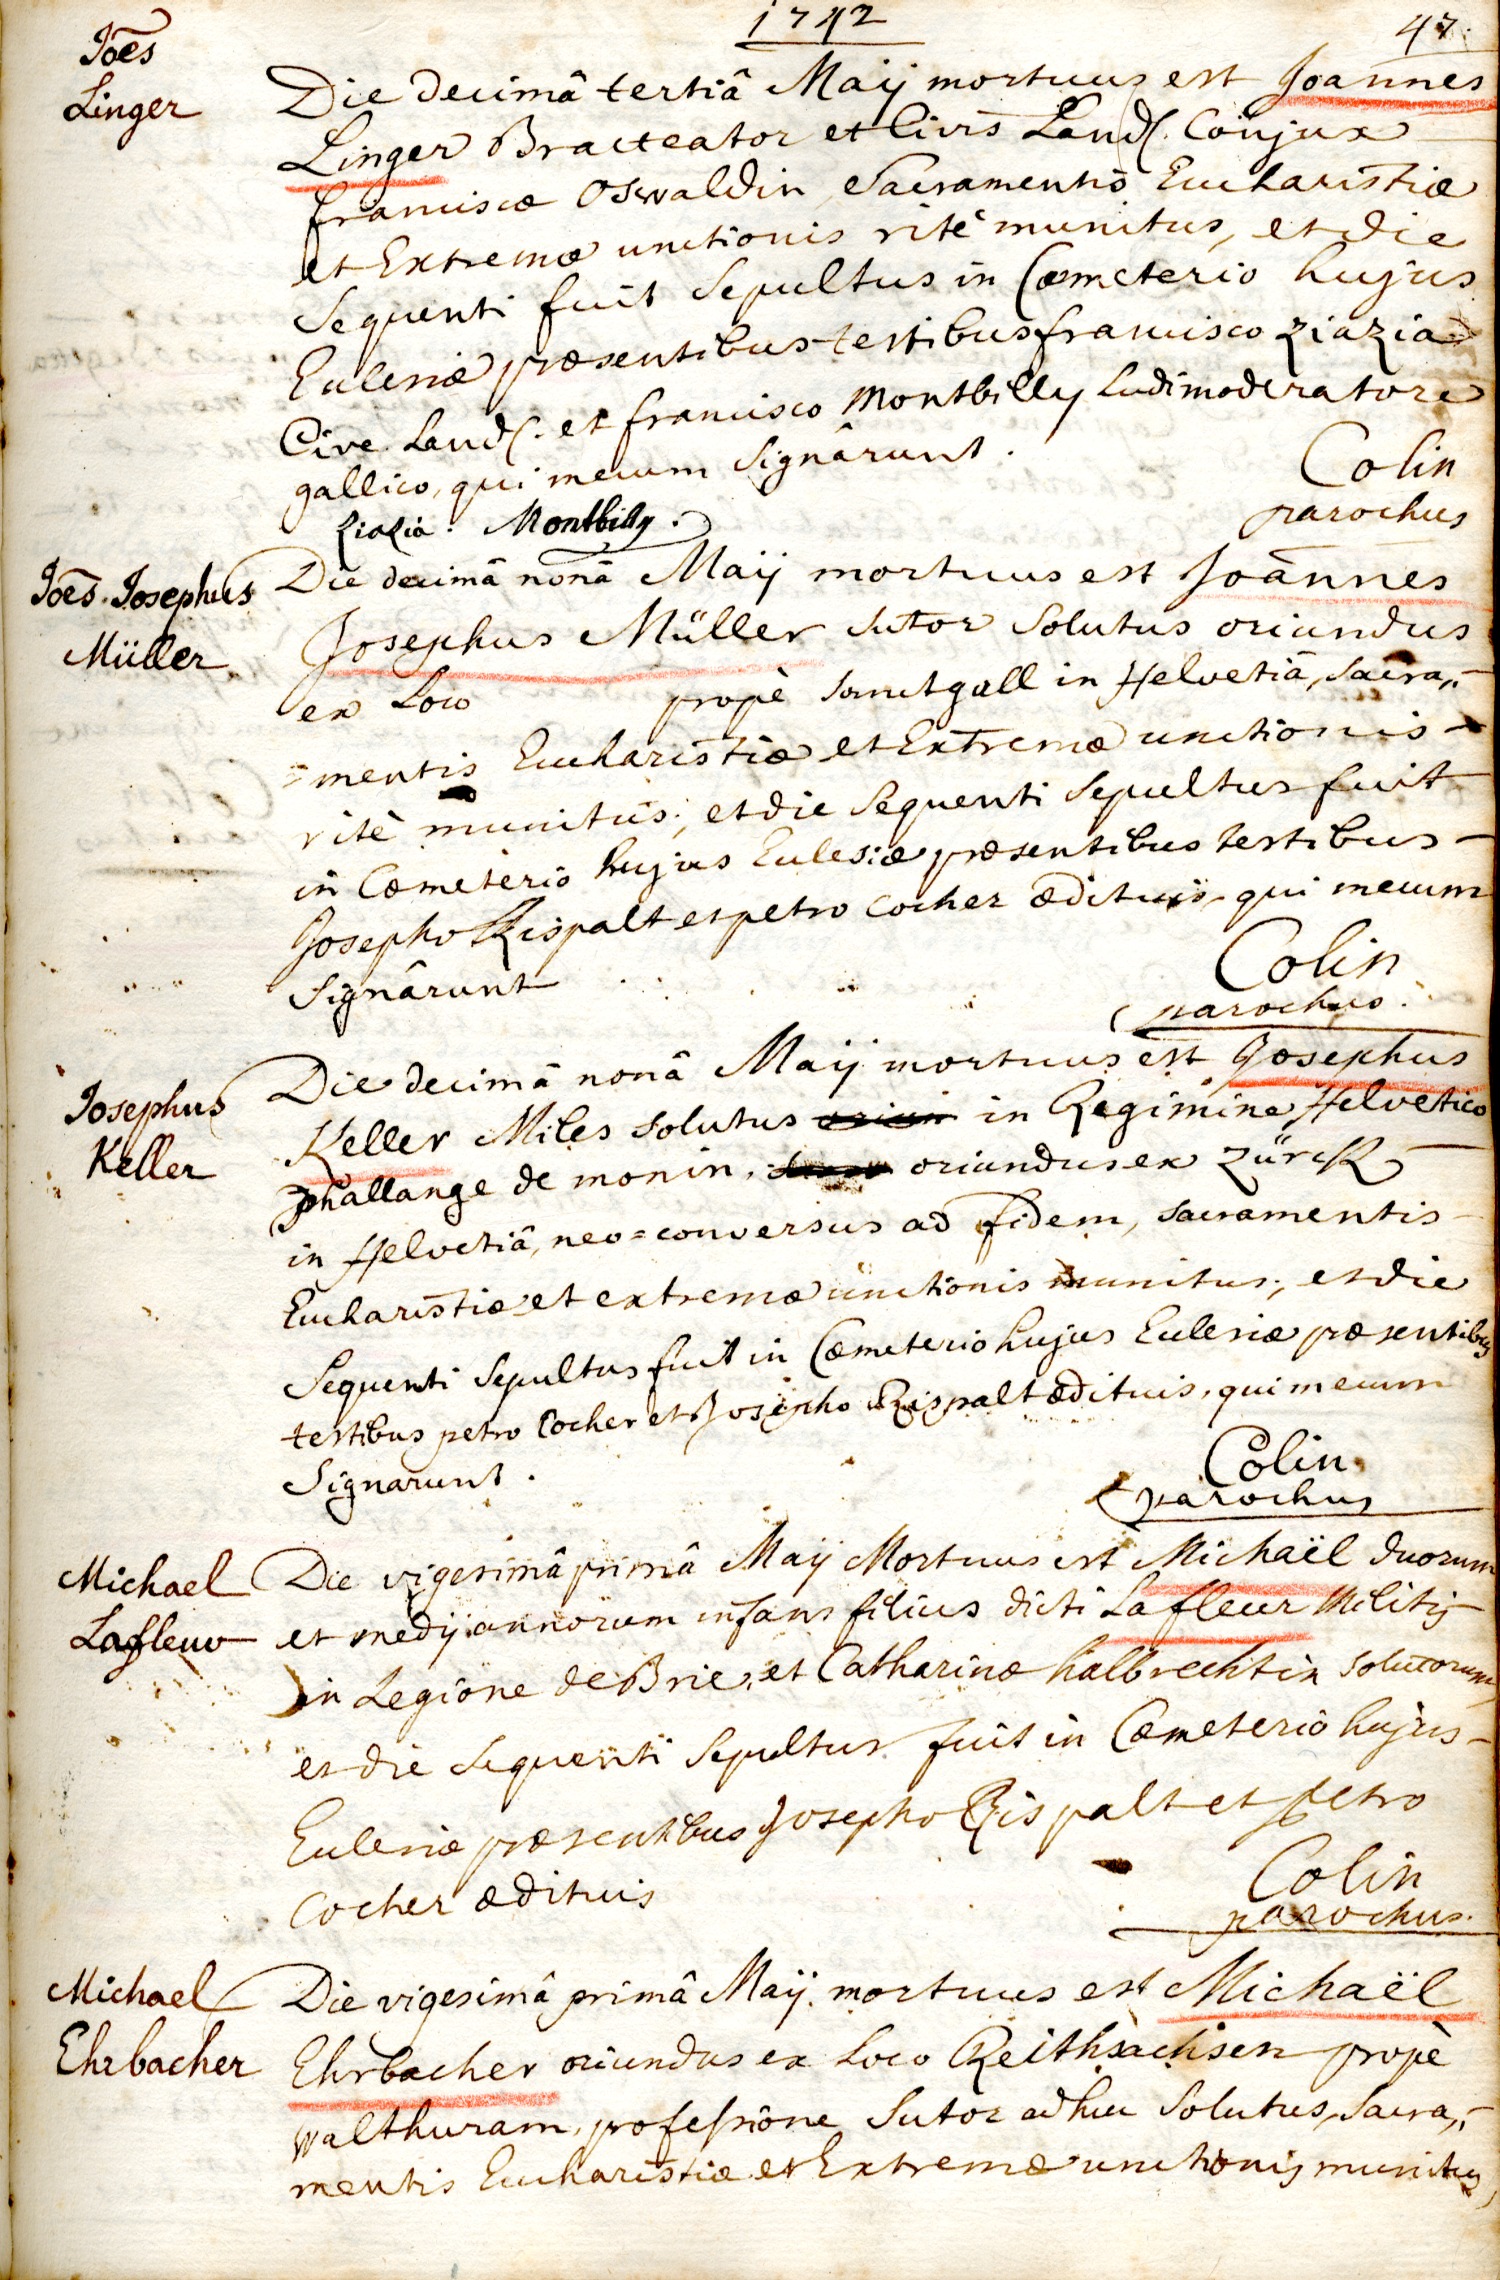 1742
47.
Joēs
Linger
Die decimâ tertiâ Maij mortuus est Joannes
Linger Bracteator et Civis Land. Conjux
franciscæ Oswaldin, Sacramentis Eucharistiæ
et Extremæ unctionis ritè munitus, et die
Sequenti fuit Sepultus in Cœmeterio hujus
Ecclesiæ præsentibus testibus francisco Ziazia
Cive Land. et francisco Montbilly Ludimoderatore
gallico, qui mecum Signârunt.
Colin
parochus
Ziazia. Montbilly.
Joēs. Josephus
Müller
Die decimâ nonâ Maij mortuus est Joannes
Josephus Müller Sutor Solutus oriundus
ex Loco propè Sanctgall in Helvetiâ, Sacra,,
=mentis Eucharistiæ et Extremæ unctionis
ritè munitus; et die Sequenti Sepultus fuit
in Cœmeterio hujus Ecclesiæ præsentibus testibus
Josepho Rispalt et petro Cocher ædituis, qui mecum
Signârunt
Colin
parochus.
Josephus
Keller
Die decimâ nonâ Maij mortuus est Josephus
Keller Miles Solutus in Regimine Helvetico
phallange de monin, oriundus ex Zürck
in Helvetiâ, neo=conversus ad fidem, sacramentis
Eucharistiæ et extremæ unctionis munitus; et die
Sequenti Sepultus fuit in Cœmeterio hujus Ecclesiæ præsentibus
testibus petro Cocher et Josepho Rispalt ædituis, qui mecum
Signarunt.
Colin
parochus
Michael
Lafleur
Die vigesimâ primâ Maij Mortuus est Michaël duorum
et medij annorum infans filius dicti Lafleur Militis
in Legione de Brie, et Catharinæ halbrechtin Solutorum,
et die Sequenti Sepultus fuit in Cœmeterio hujus
Ecclesiæ præsentibus Josepho Rispalt et petro
Cocher ædituis
Colin
parochus.
Michael
Ehrbacher
Die vigesimâ primâ Maij mortuus est Michaël
Ehrbacher oriundus ex Loco Reithsachsen propè
Walthuram, professione Sutor adhuc Solutus, Sacra,,
mentis Eucharistiæ et Extremæ unctionis munitus,